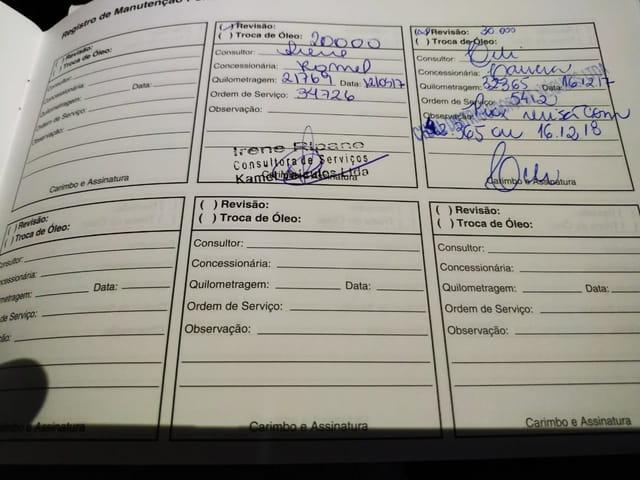 Registro de Manutenção
( ) Revisão:
( ) Troca de Óleo:
Consultor:
Concessionária:
Quilometragem: Data:
Ordem de Serviço:
Observação:
Carimbo e Assinatura
Revisão:
( ) Troca de Óleo: 20000
Consultor: Irene
Concessionária: Kamel
Quilometragem: 21769 Data:
Ordem de Serviço: 34726
Observação:
Irene Ripano
Consultora de Serviços
Kamel Veículos Ltda
Carimbo e Assinatura
Revisão: 30 000
( ) Troca de Óleo:
Consultor:
Concessionária:
Quilometragem: 32365 Data: 16.12.17
Ordem de Serviço: 5412
Observação:
365 ou 16.12.18
Carimbo e Assinatura
( ) Revisão:
( ) Troca de Óleo:
Consultor:
Concessionária:
Data:
de Serviço:
Carimbo e Assinatura
( ) Revisão:
( ) Troca de Óleo:
Consultor:
Concessionária:
Quilometragem: Data:
Ordem de Serviço:
Observação:
Carimbo e Assinatura
( ) Revisão:
( ) Troca de Óleo:
Consultor:
Concessionária:
Quilometragem: Data:
Ordem de Serviço:
Observação:
Carimbo e Assinatura